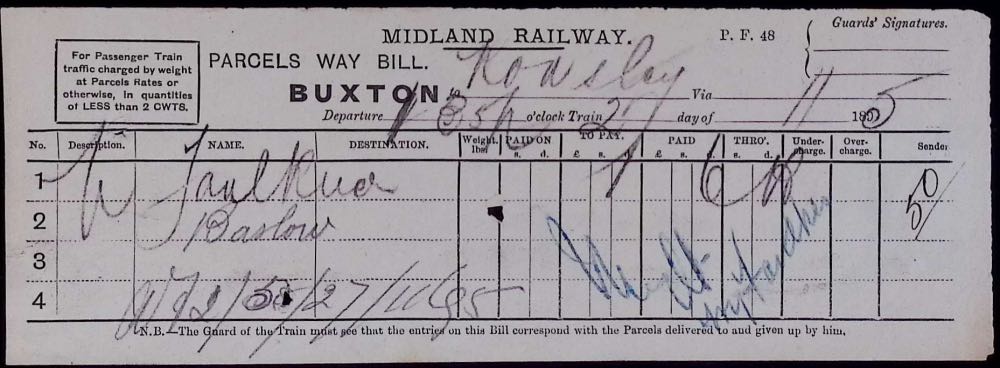 Guards' Signatures.
MIDLAND RAILWAY. P. F. 48
For Passenger Train
traffic charged by weight
at Parcels Rates or
otherwise, in quantities
of LESS than 2 CWTS.
PARCELS WAY BILL.
BUXTON to Rowsley Via
Departure o'clock Train 27 day of 11 1895
No. Description. NAME. DESTINATION. Weight. lbs. PAID ON s. d. TO PAY. £ s. d. PAID £ s. d. THRO'. s. d. Under-charge. Over-charge. Sender
1 Faulkner 1 6 50/
2 Baslow
3
4 27/11/95
N.B.—The Guard of the Train must see that the entries on this Bill correspond with the Parcels delivered to and given up by him,